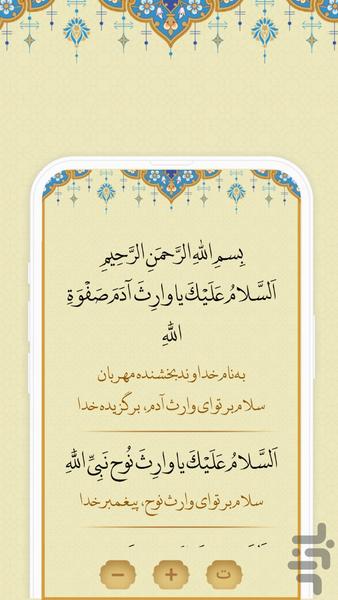 بِسمِ اللهِ الرَّحمَنِ الرَّحِیمِ
اَلسَّلامُ عَلَیْكَ یا وارِثَ آدَمَ صَفْوَةِ
اللهِ
به نام خداوند بخشنده مهربان
سلام بر تو ای وارث آدم، برگزیده خدا
اَلسَّلامُ عَلَیْكَ یا وارِثَ نُوحٍ نَبِیِّ اللهِ
سلام بر تو ای وارث نوح، پیغمبر خدا
ت + −
بازار